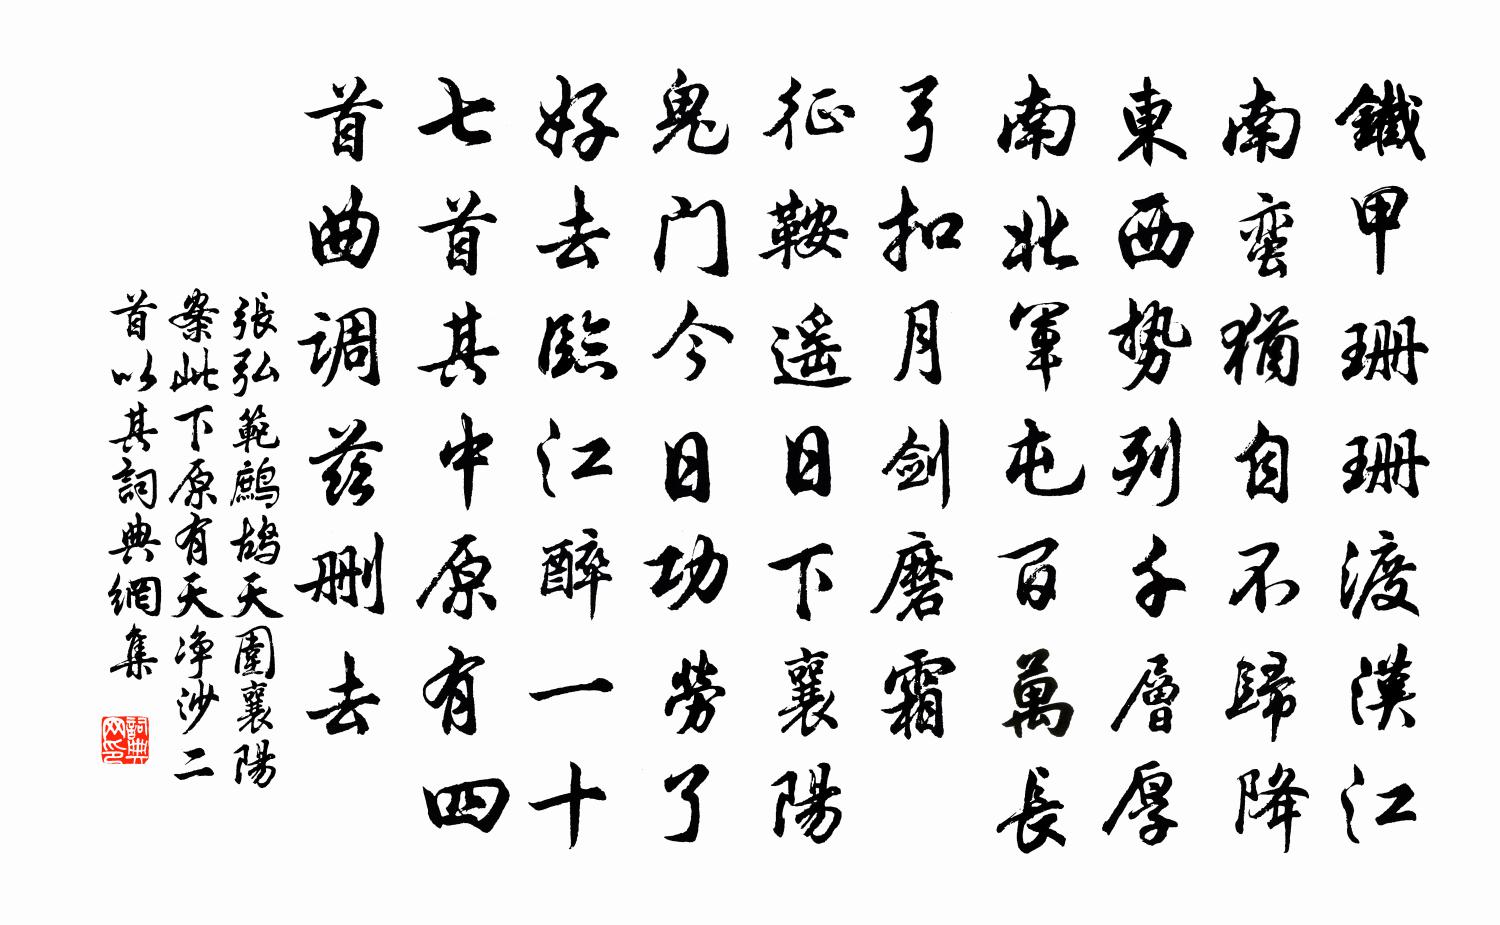 鐵甲珊珊渡漢江
南蛮猶自不歸降
東西勢列千層厚
南北軍屯百萬長
弓扣月剑磨霜
征鞍遥日下襄陽
鬼门今日功勞了
好去臨江醉一十
七首其中原有四
首曲调兹删去
張弘範鷓鴣天圍襄陽
案此下原有天净沙二
首以其詞典網集
詞典网印